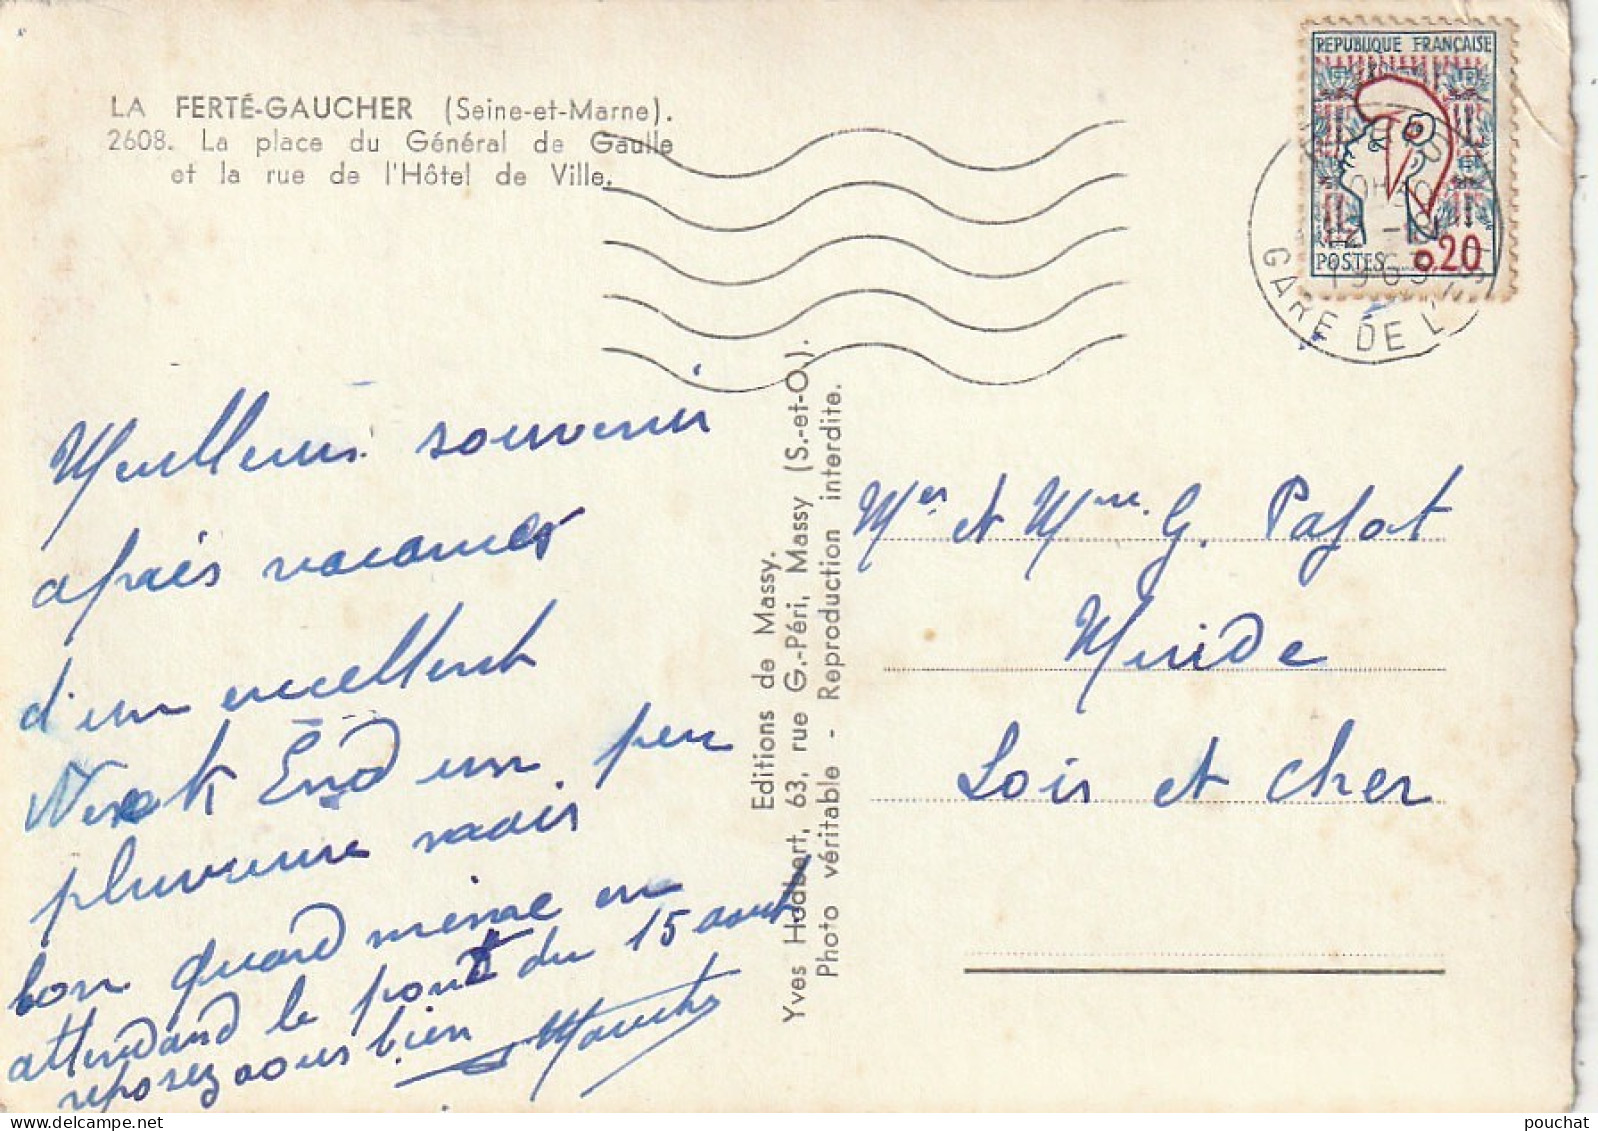 LA FERTÉ-GAUCHER (Seine-et-Marne).
2608. La place du Général de Gaulle
et la rue de l'Hôtel de Ville.
REPUBLIQUE FRANÇAISE
POSTES 0,20
1963
GARE DE L'
Meilleurs souvenir
après vacances
d'un excellent
Week End un peu
pluvieuse mais
bon quand même en
attendand le pont du 15 août
reposez vous bien
Editions de Massy.
Yves Hodbert, 63, rue G.-Péri, Massy (S.-et-O).
Photo véritable - Reproduction interdite.
Mer et Mme G. Pajot
Muide
Loir et Cher
pouchat